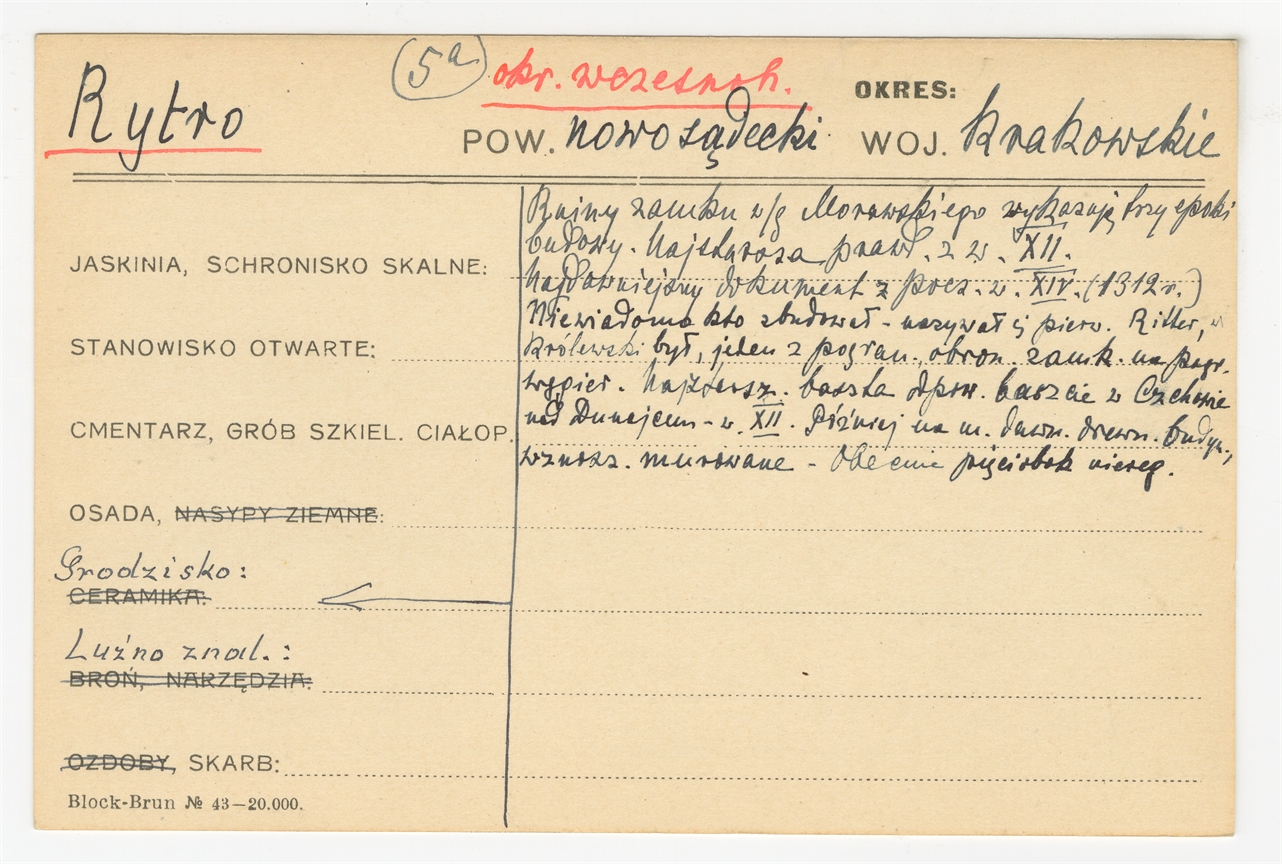 (5a) okr. wczesnoh. OKRES:
Rytro POW. nowosądecki WOJ. Krakowskie
Ruiny zamku w/g Morawskiego wykazują trzy epoki
budowy. Najstarsza prawd. z w. XII.
Najdawniejszy dokument z pocz. w. XIV. (1312 r.)
Niewiadomo kto zbudował - nazywał się pierw. Ritter,
Królewski był, jeden z pogran. obron. zamk. na pogr.
węgier. Najstarsz. baszta odpow. baszcie w Czchowie
nad Dunajcem - w. XII. Później na m. dawn. drewn. budyn.,
wznosz. murowane - Obecnie pięciobok niereg.
JASKINIA, SCHRONISKO SKALNE:
STANOWISKO OTWARTE:
CMENTARZ, GRÓB SZKIEL. CIAŁOP.
OSADA, NASYPY ZIEMNE:
Grodzisko:
CERAMIKA:
Luźno znal.:
BROŃ, NARZĘDZIA:
OZDOBY, SKARB:
Block-Brun № 43—20.000.